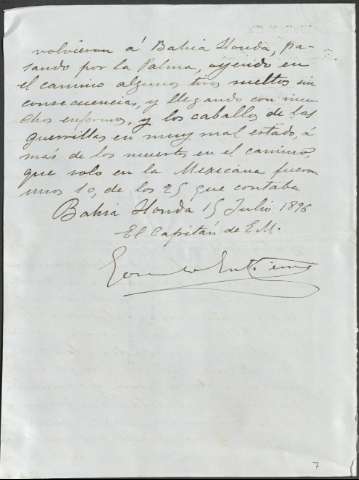 volvieron á Bahia Honda, pa-
sando por la Palma, oyendo en
el camino algunos tiros sueltos sin
consecuencias, y llegando con mu-
chos enfermos, y los caballos de las
guerrillas en muy mal estado, á
más de los muertos en el camino
que solo en la Mexicana fueron
unos 10, de los 25 que contaba
Bahia Honda 15 Julio 1896
El Capitán de E.M.
7